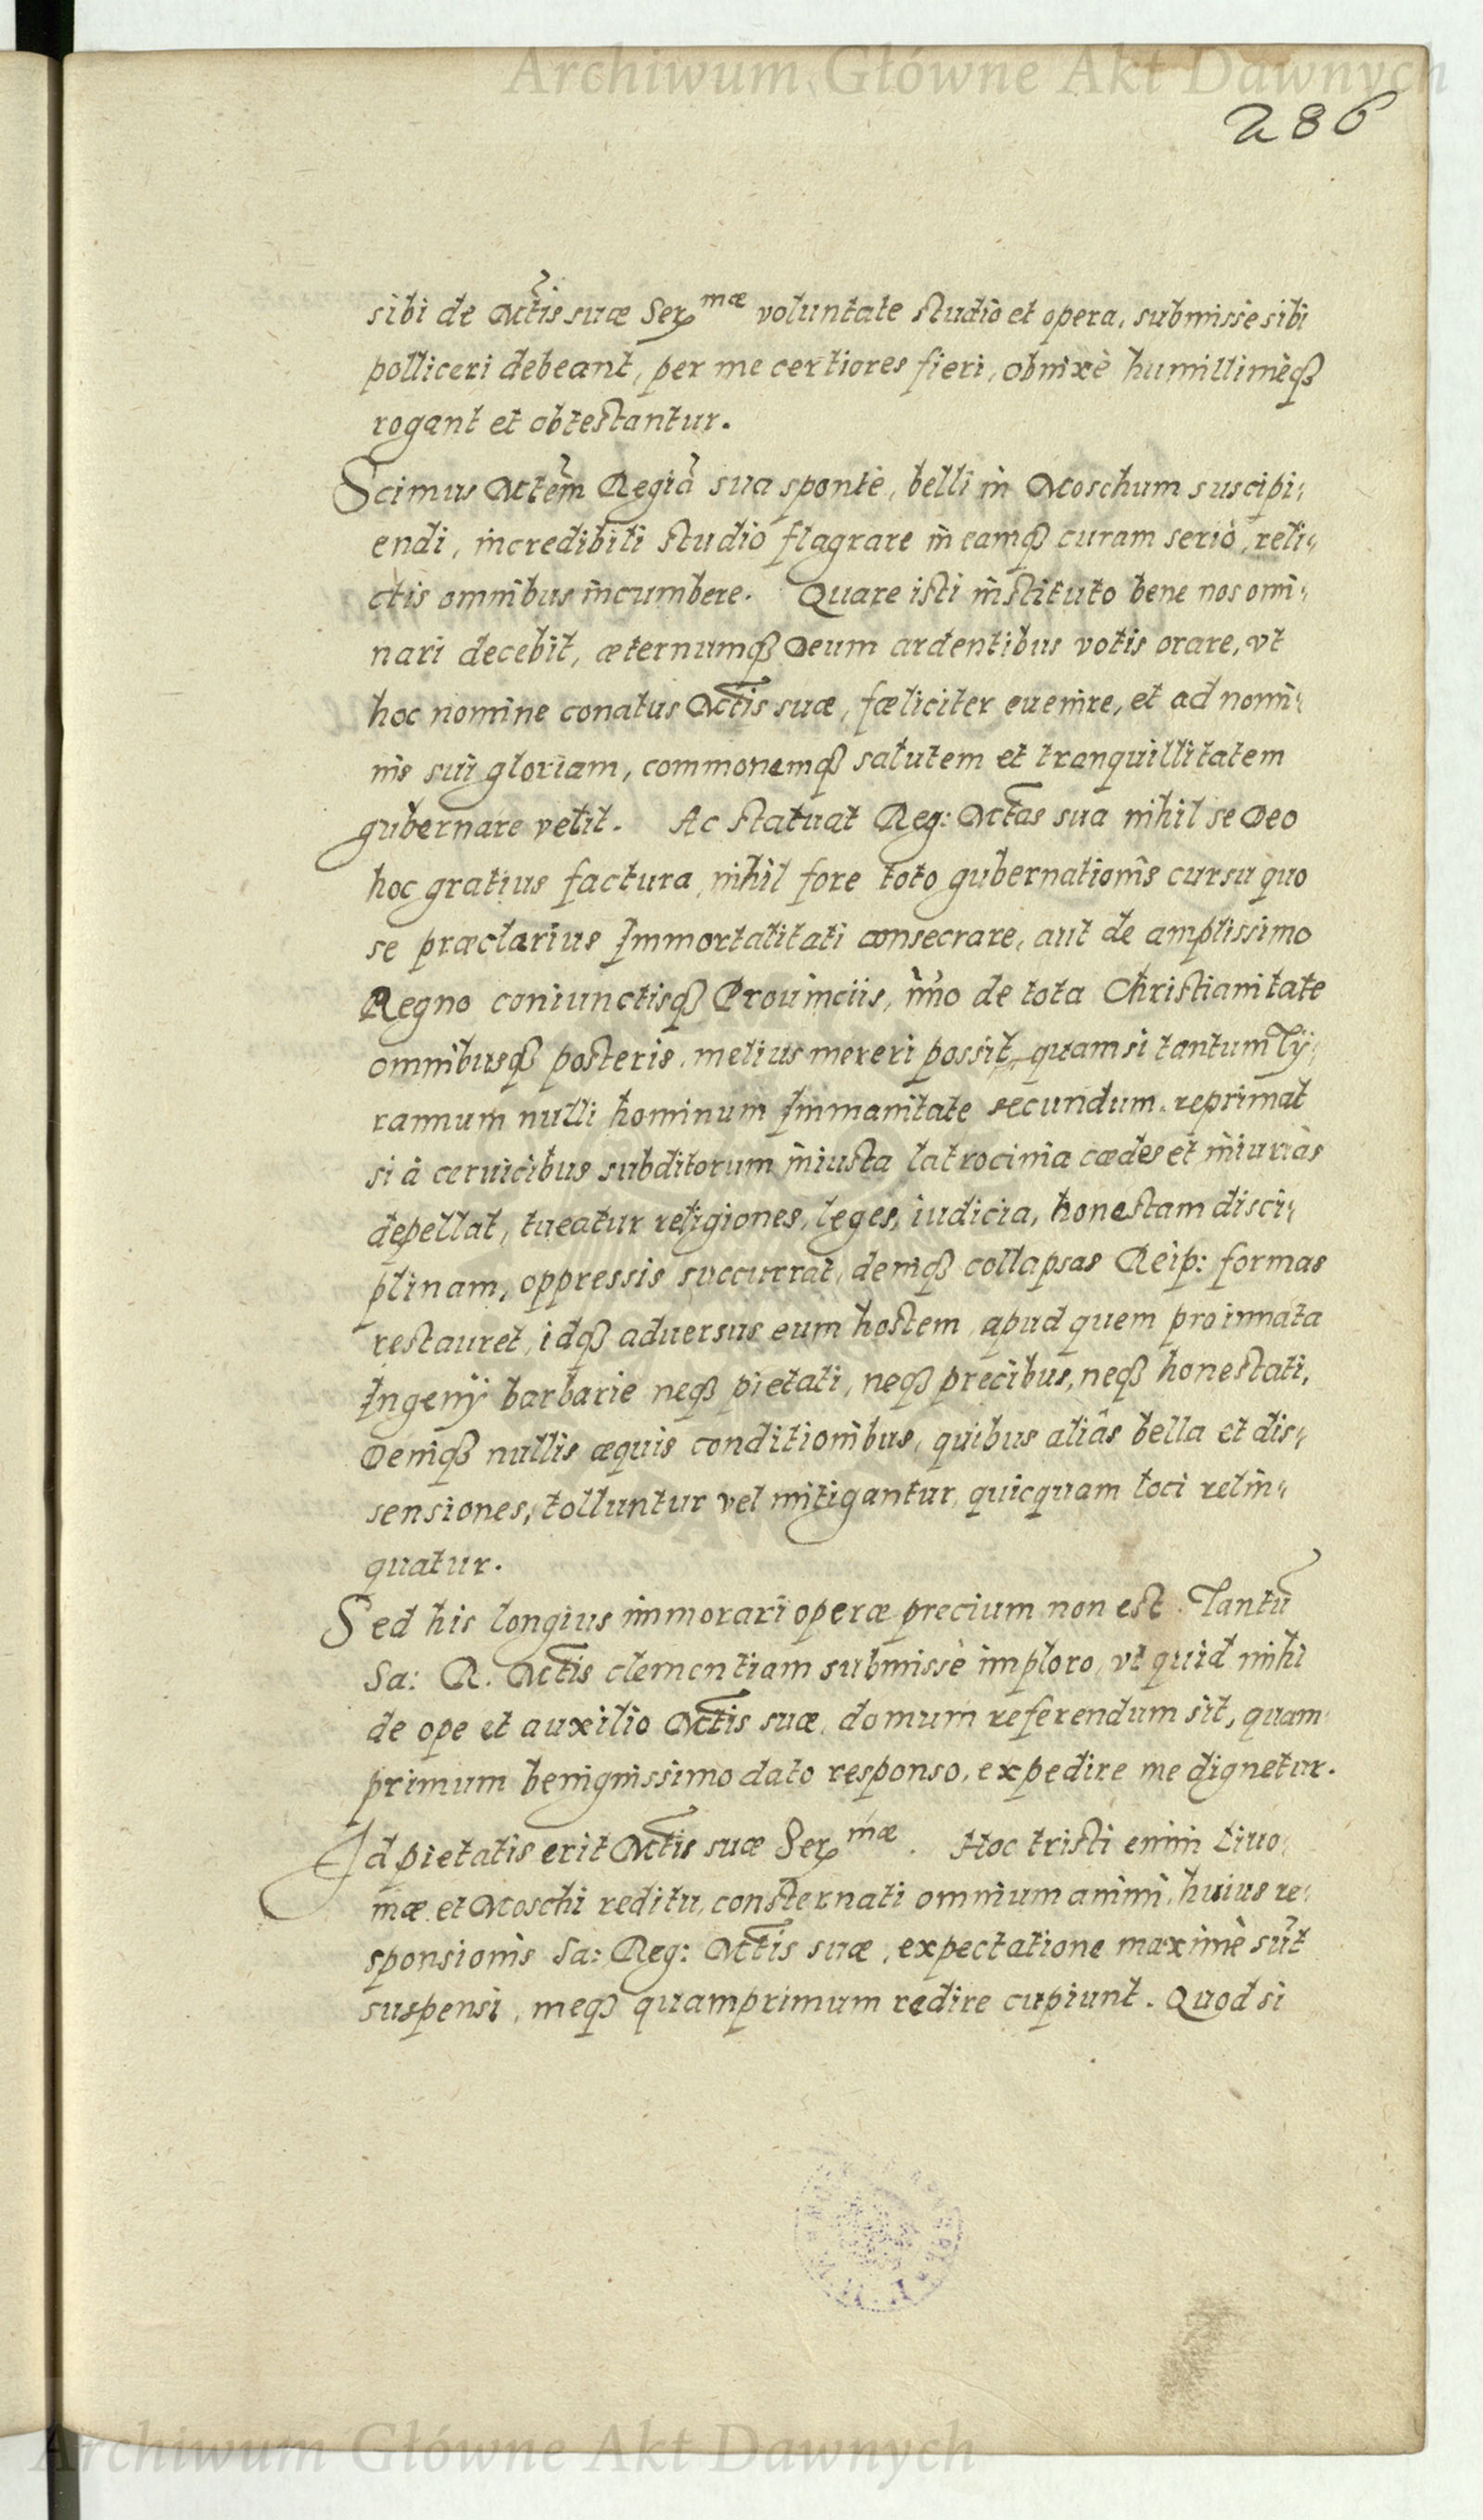 Archiwum Główne Akt Dawnych
286
sibi de Mtis suæ Ser^mæ voluntate studio et opera, submisse sibi
polliceri debeant, per me certiores fieri, obnixè humillimèq₃
rogant et obtestantur.
Scimus Mtem Regiā sua sponte, belli in Moschum suscipi,,
endi, incredibili studio flagrare in eamq₃ curam seriò, reli,,
ctis omnibus incumbere. Quare isti instituto bene nos omi,,
nari decebit, æternumq₃ Deum ardentibus votis orare, vt
hoc nomine conatus Mtis suæ, fœliciter euenire, et ad nomi,,
nis sui gloriam, commonemq₃ salutem et tranquillitatem
gubernare velit. Ac statuat Reg: Mtas sua nihil se Deo
hoc gratius factura, nihil fore toto gubernationis cursu quo
se præclarius Immortalitati consecrare, aut de amplissimo
Regno coniunctisq₃ Prouinciis, imo de tota Christianitate
omnibusq₃ posteris, melius mereri possit, quam si tantum Ty,,
rannum nulli hominum Immanitate secundum, reprimat
si à ceruicibus subditorum iniusta latrocinia cædes et iniurias
depellat, tueatur religiones, leges, iudicia, honestam disci,,
plinam, oppressis succurrat, deniq₃ collapsas Reip: formas
restauret, idq₃ aduersus eum hostem, apud quem pro innata
Ingenij barbarie neq₃ pietati, neq₃ precibus, neq₃ honestati,
Deniq₃ nullis æquis conditionibus, quibus aliâs bella et dis,,
sensiones, tolluntur vel mitigantur, quicquam loci relin,,
quatur.
Sed his longius immorari operæ precium non est. Tantū
Sa: R. Mtis clementiam submissè imploro, vt quid mihi
de ope et auxilio Mtis suæ, domum referendum sit, quam,,
primum benignissimo dato responso, expedire me dignetur.
Id pietatis erit Mtis suæ Ser^mæ. Hoc tristi enim Liuo,,
niæ et Moschi reditu, consternati omnium animi, huius re,,
sponsionis Sa: Reg: Mtis suæ, expectatione maximè sūt
suspensi, meq₃ quamprimum redire cupiunt. Quod si
Archiwum Główne Akt Dawnych